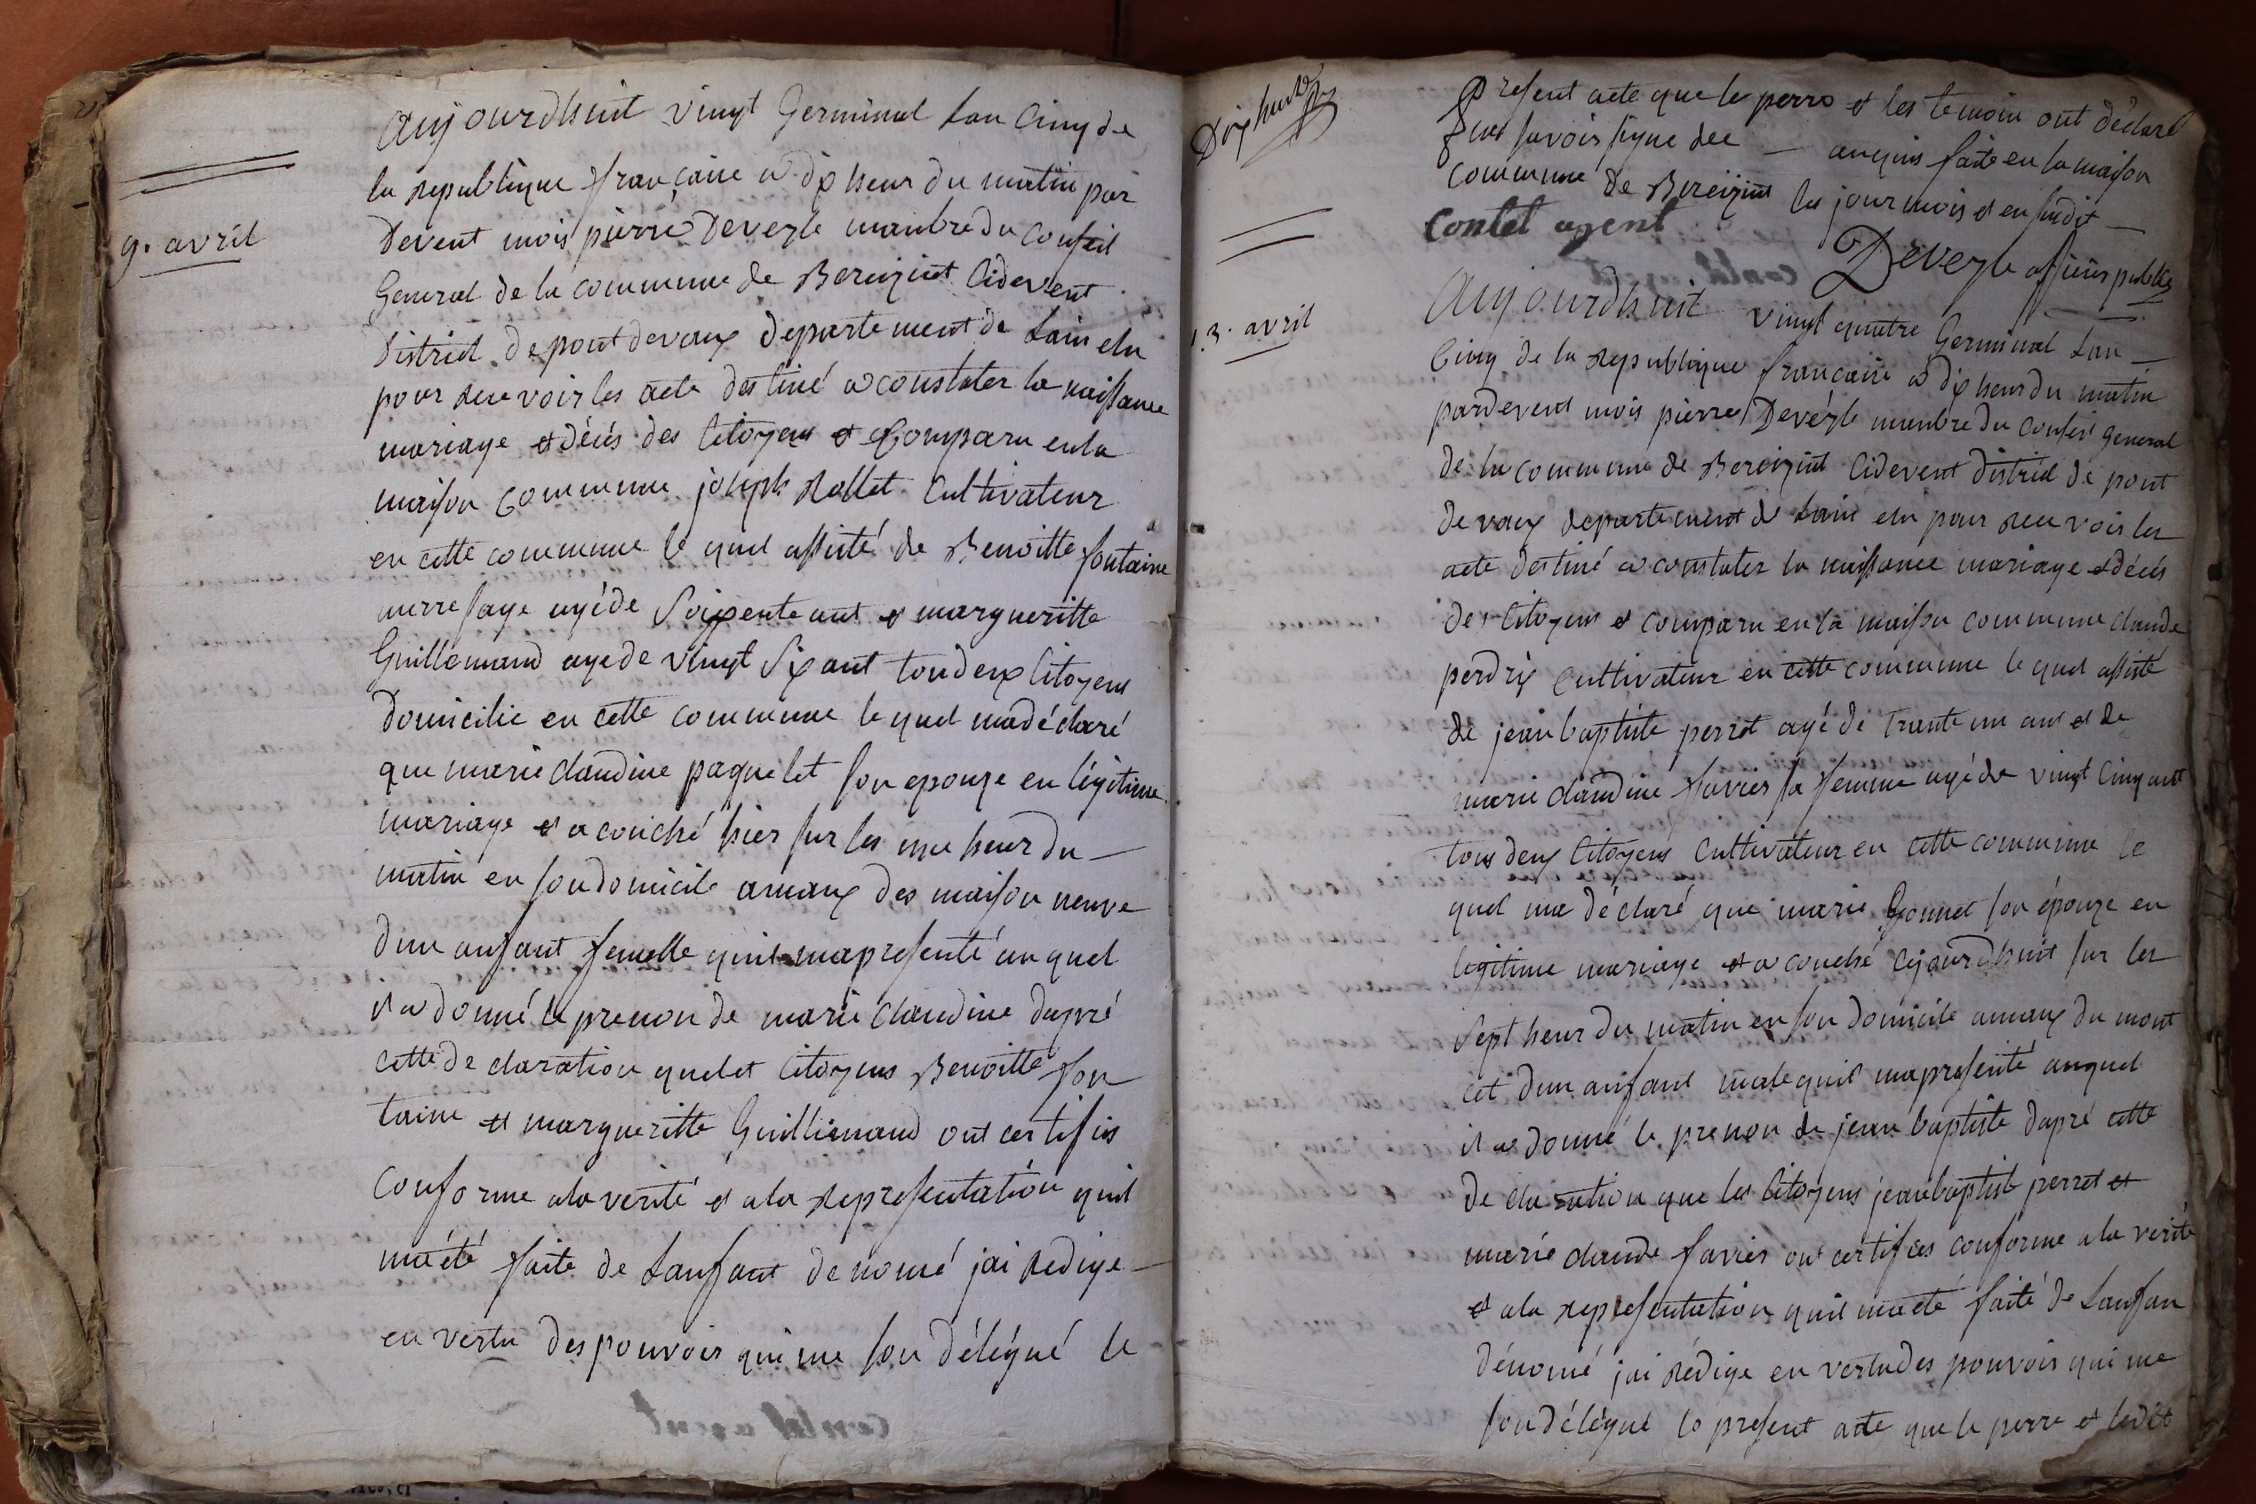 9. avril
aujourdhuit vingt Germinal Lan Cinq de
la republique française a dix heur du matin par
Devent mois pierre Deveyle manbre du Conseil
General de la commune de Bereiziat Cidevent
District de pont devaux departement de Lain elu
pour reuevoir les acte destiné a constater la naissance
mariage et décés des Citoyens et Comparu en la
maison commune joseph Rollet Cultivateur
en cette commune le quel assisté de Benoitte fontaine
merre sage agé de Soixente ant et margueritte
Guillemaud age de vingt Six ant toudeux Citoyens
domicilie en cette commune le quel ma déclaré
que marie claudine paquelet son epouze en légitime
mariage et a couché hier sur les une heur du
matin en son domicile amaux des maison neuve
dun anfant femelle quil ma presenté auquel
il a donné le prenon de marie claudine dapré
cette declaration quelet Citoyens Benoitte fon
taine et margueritte Guillimaud ont certifies
conforme ala verité et ala representation quil
ma été faite de Lanfant denomé jai Redige
en vertu des pouvoir qui me son délégué le
Dix huit
present acte que le perre et les temoin ont déclaré
savoir signe dee anquis faite en la maison
commune de Bereiziat les jour mois et en sudit
Contet agent
Deveyle officier public
13. avril
aujourdhuit vingt quatre Germinal Lan
Cinq de la republique française a dix heur du matin
pardevent mois pierre Deveyle manbre du Conseil general
de la commune de Bereiziat Cidevent District de pont
de vaux departement de Lain elu pour reuevoir les
acte destiné a constater la naissance mariage et décés
des Citoyens et comparu en la maison commune claude
perdrix Cultivateur en cette commune le quel assisté
de jean baptiste perret agé de trante un ans et de
marie claudine favier sa femme agé de vingt Cinq ant
tous deux Citoyens Cultivateur en cette commune le
quel ma déclaré que marie Gonnet son épouze en
legitime mariage et a couché cejourdhuit sur les
Sept heur du matin en son domicile amaux du mont
cet dun anfant male quil ma presenté auquel
il a donné le prenon de jean baptiste dapré cette
declaration que les Citoyens jean baptist perret et
marie claude favier ont certifies conforme ala verité
et ala representation quil ma été faite de Lanfan
dénomé jai rédige en vertu des pouvoir qui me
son délégué le present acte que le perre et ledit